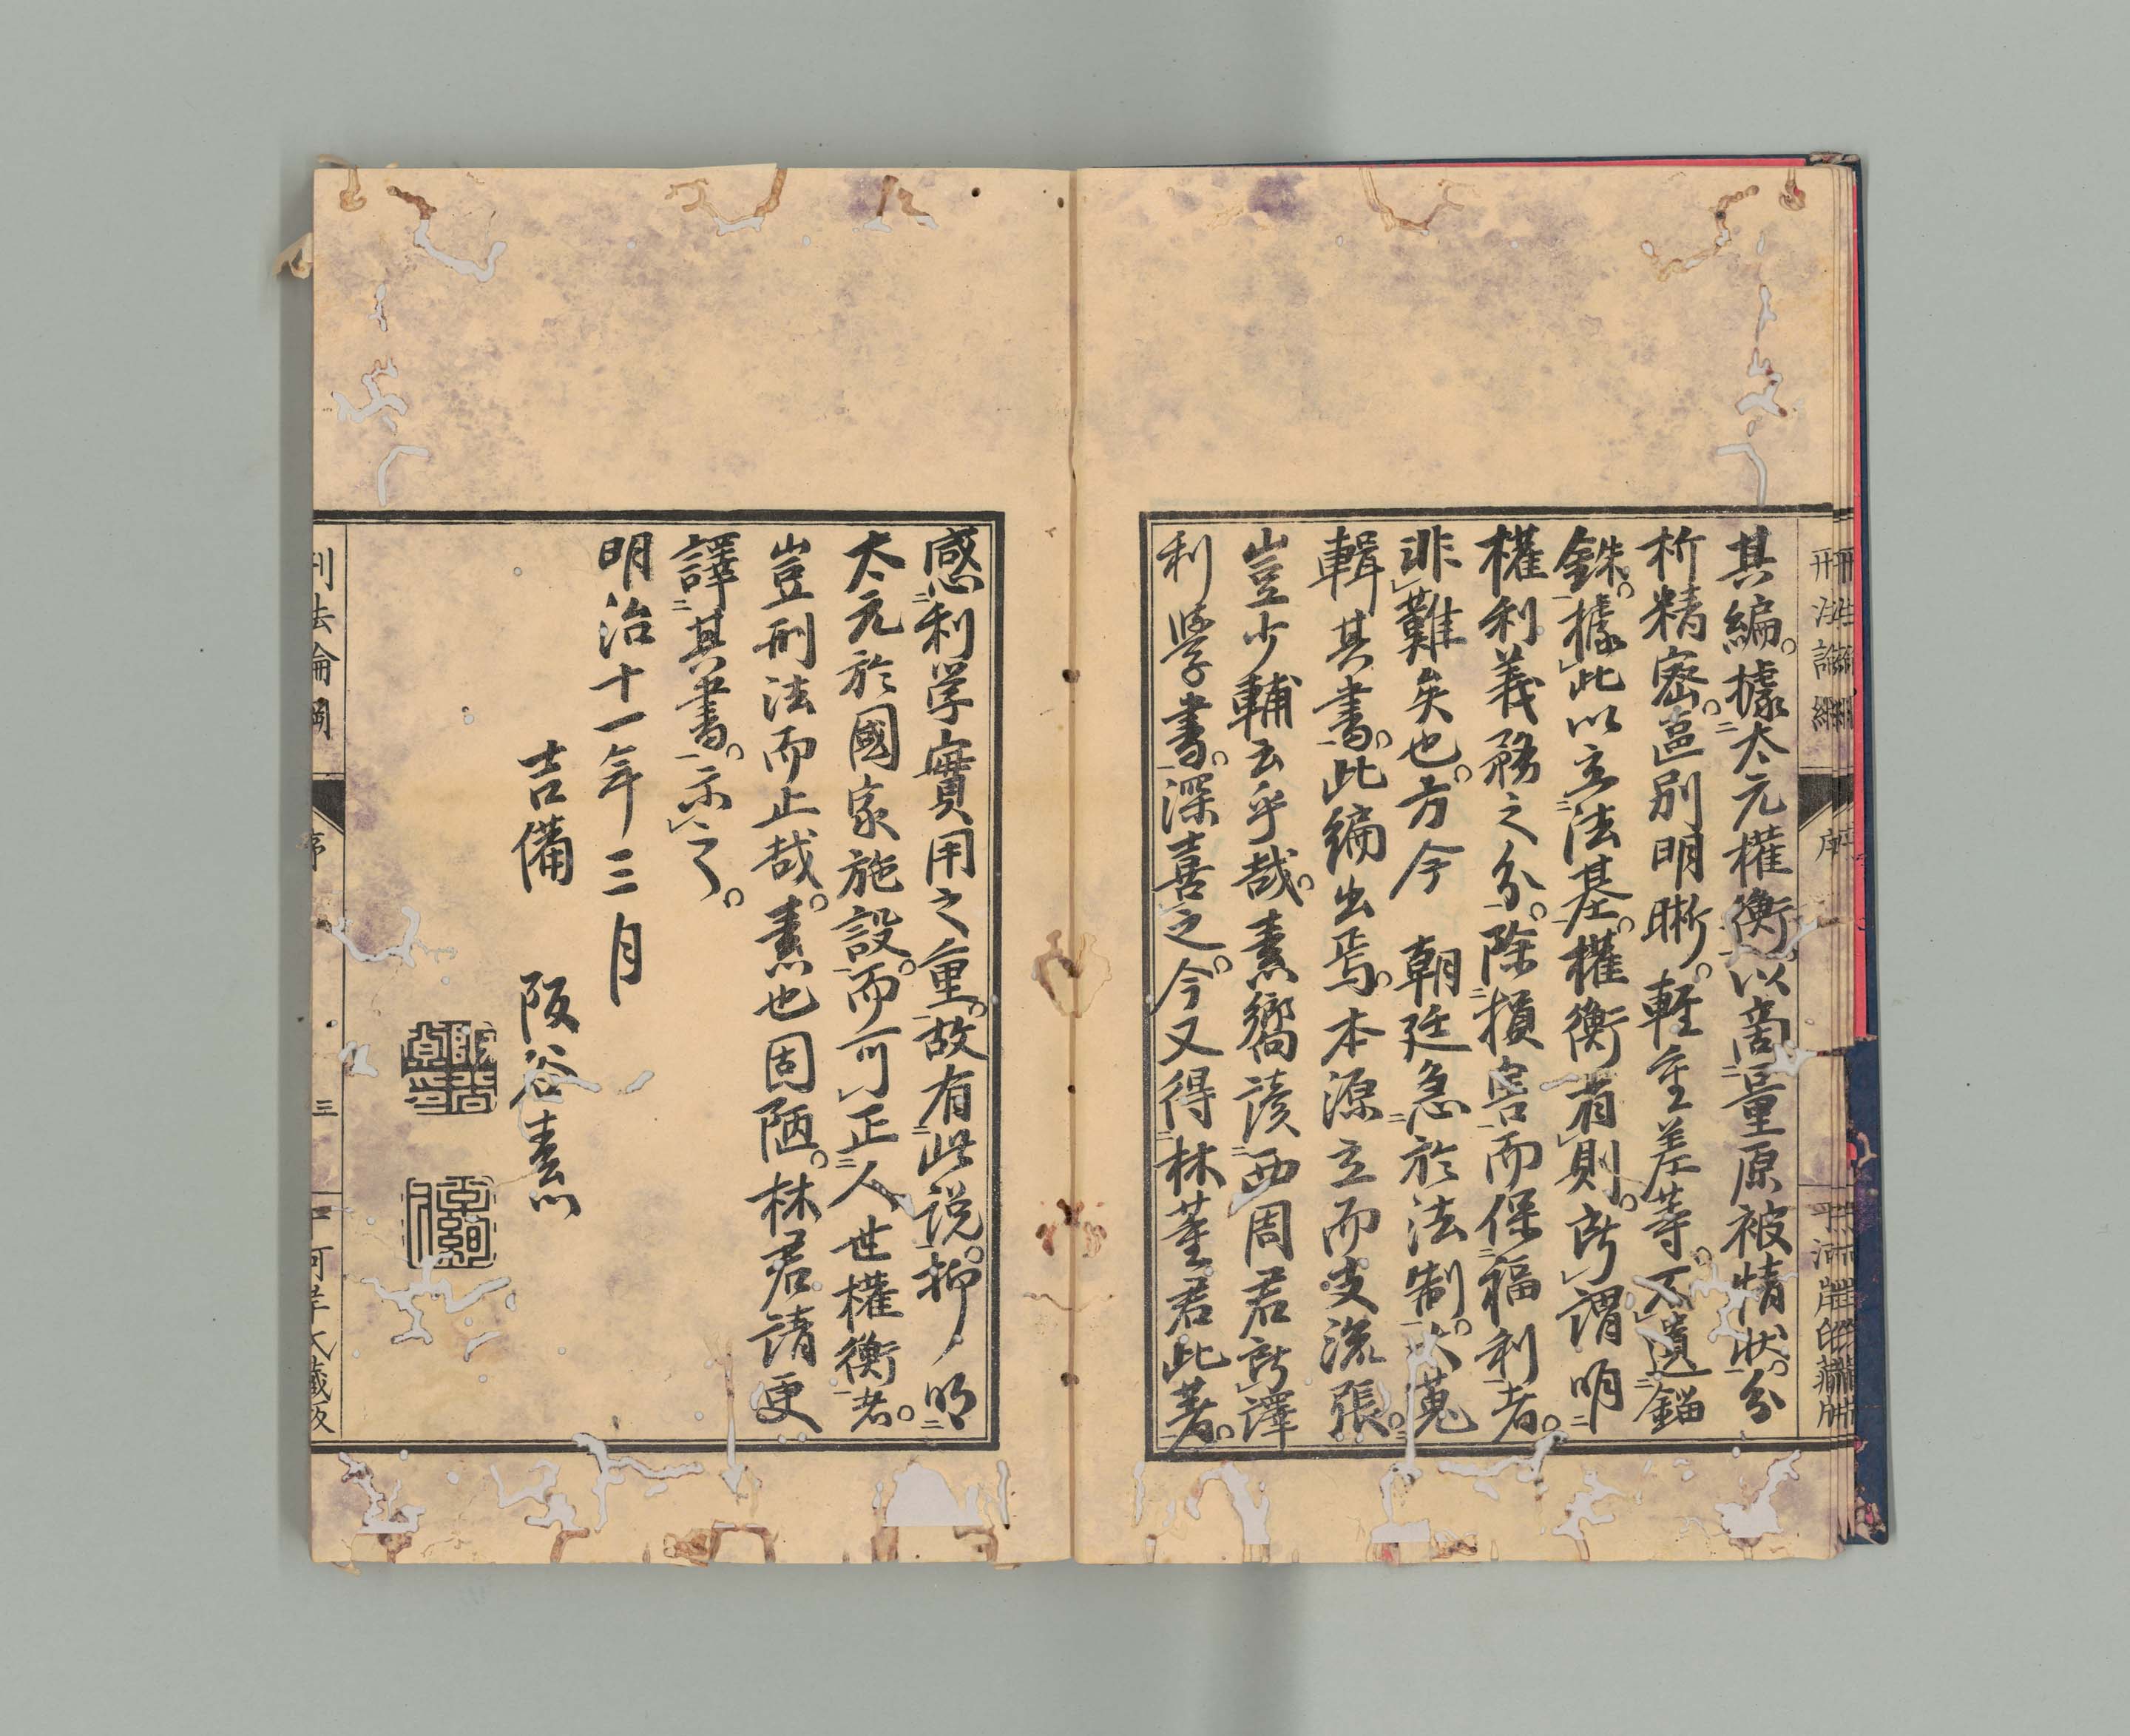 其編。據太元權衡。以商量原被情狀。分
析精密。區別明晣。輕重差等。不遺錙
銖。據此以立法基。權衡有則。所謂明
權利義務之分。除損害而保福利者。
非難矣也。方今 朝廷急於法制。蒐
輯其書。此編出焉。本源立而支流張。
豈少輔云乎哉。素嚮讀西周君所譯
利學書。深喜之。今又得林董君此著。
感利学實用之重。故有此説。抑明
太元於國家施設。而可正人世權衡者。
豈刑法而止哉。素也固陋。林君請更
譯其書。示之。
明治十一年三月
吉備 阪谷素
刑法論綱 序 三